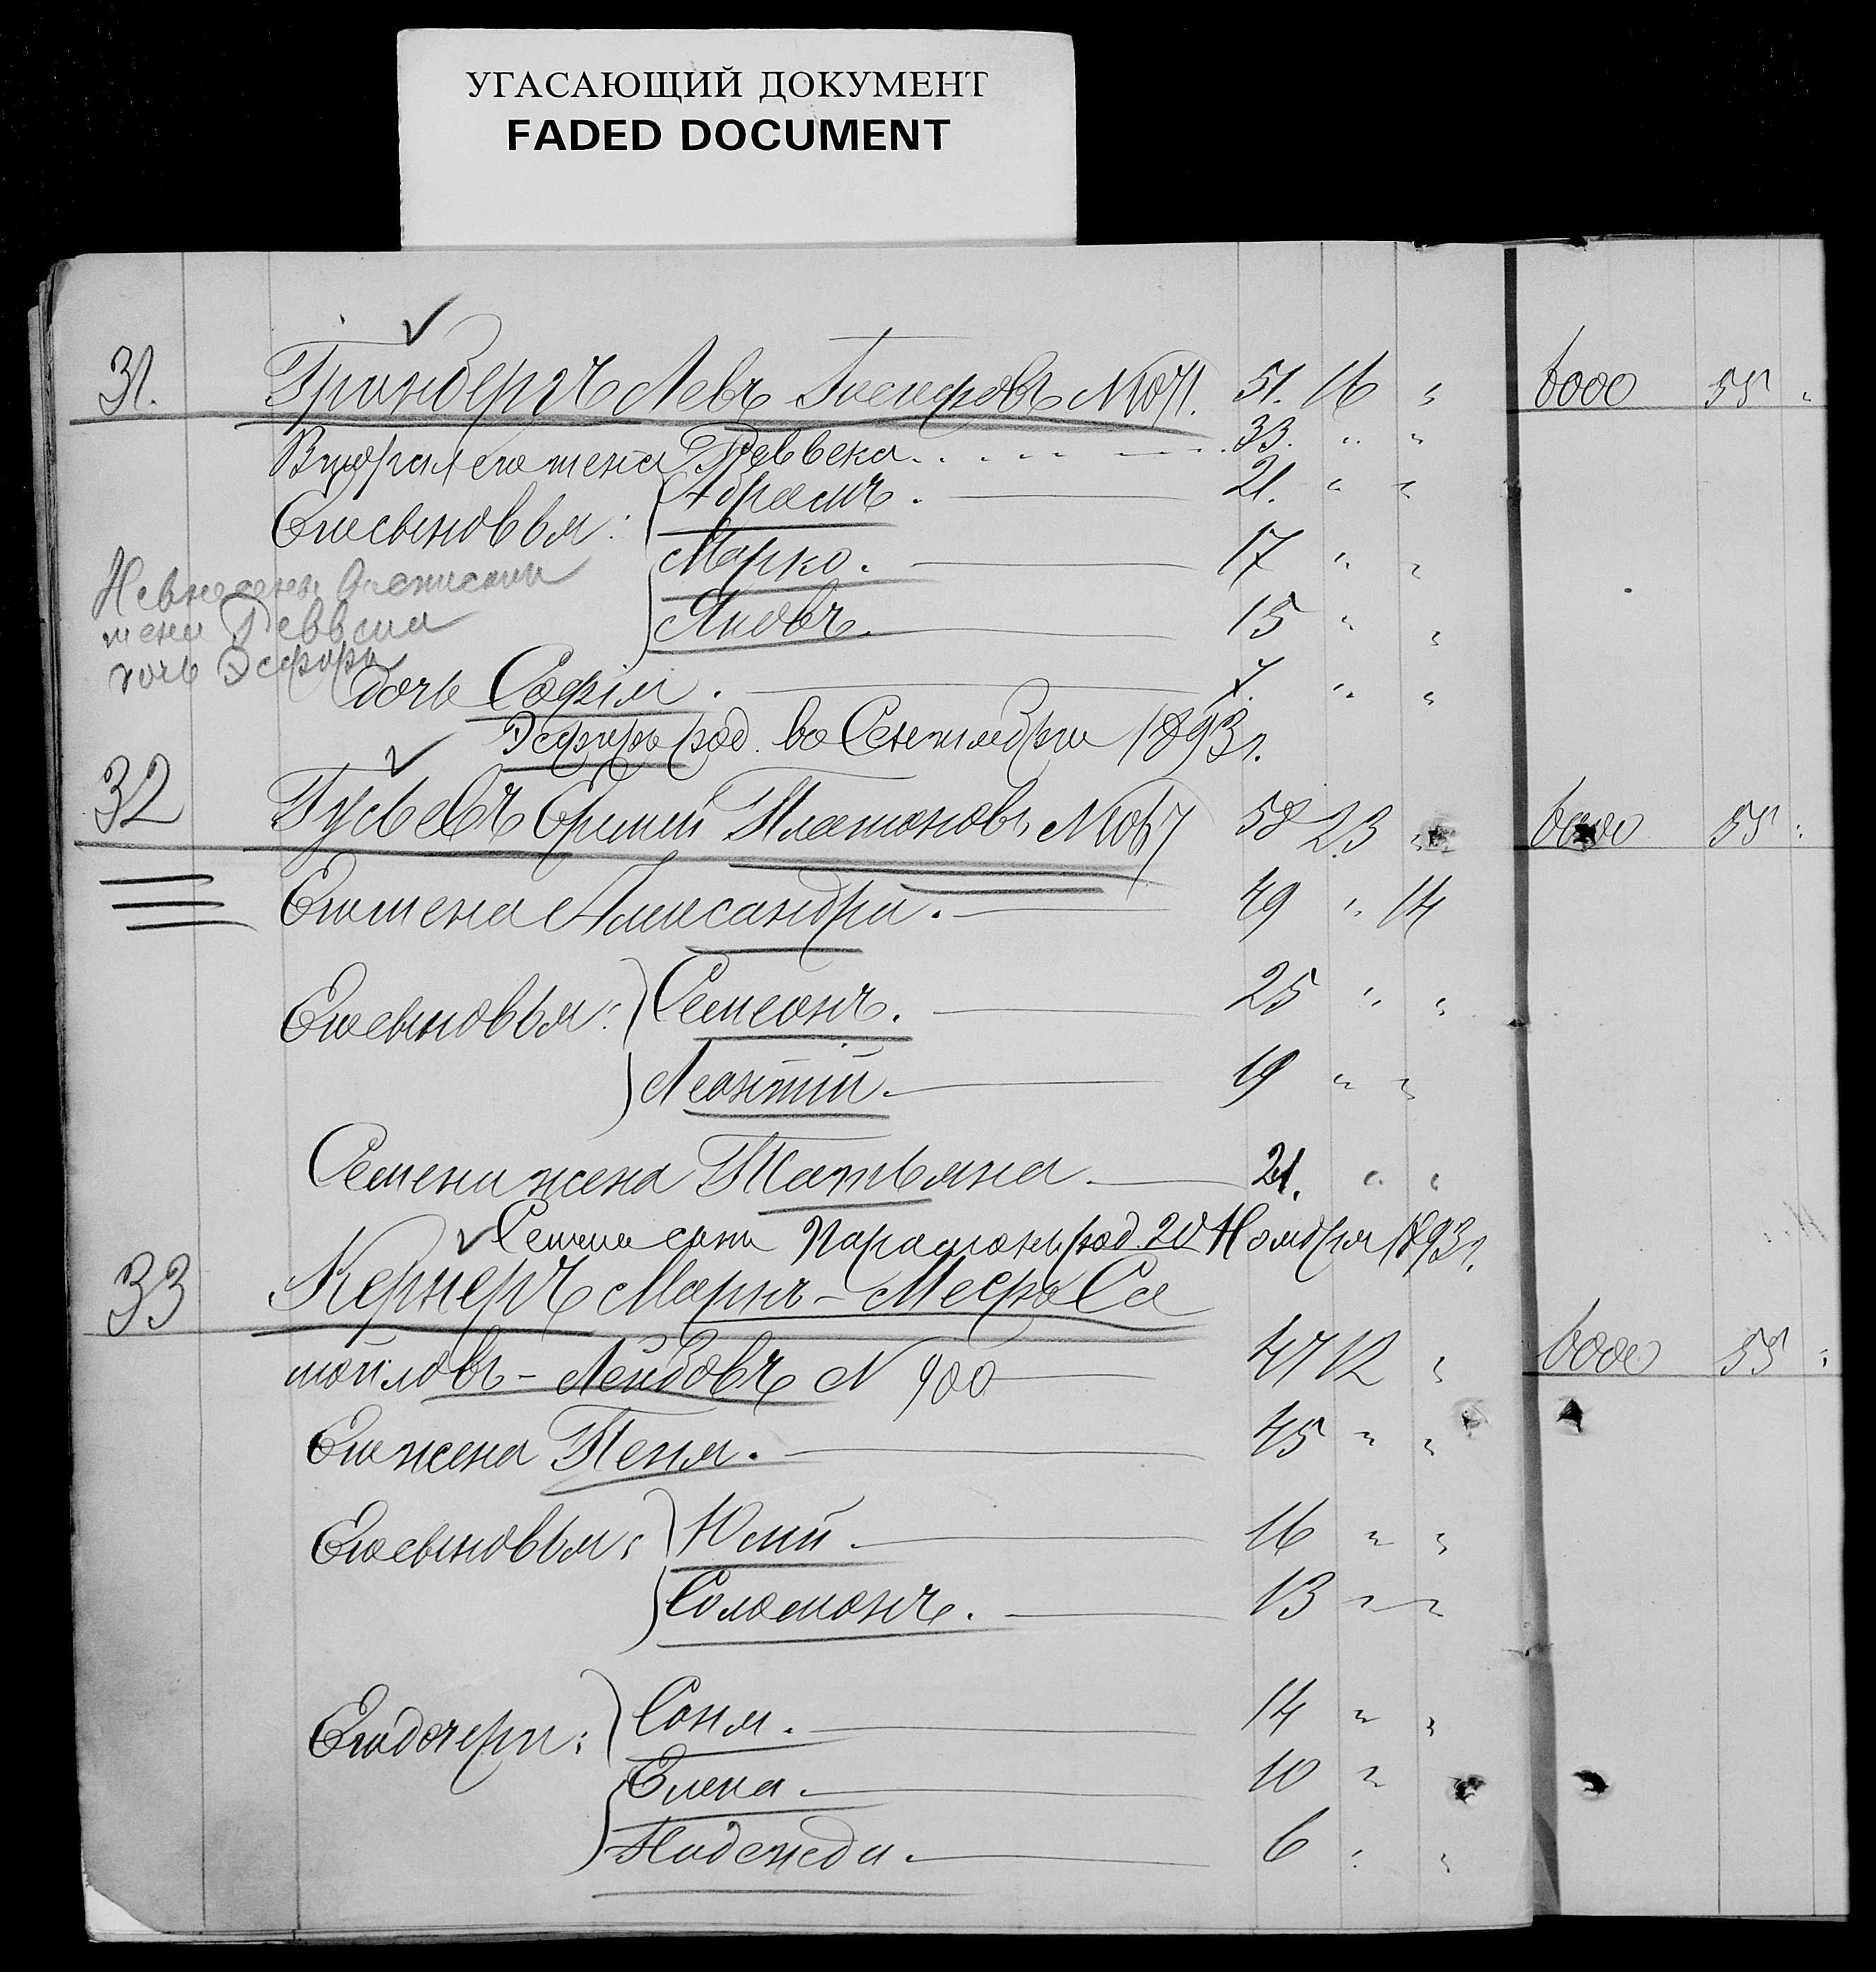 УГАСАЮЩИЙ ДОКУМЕНТ
FADED DOCUMENT
31. Гринбергъ Левъ Іосифовъ 51. 16 " 6000 55 "
Вторая его жена Реввека 33. " "
Его сыновья: Абрамъ. 21. " "
Марко. 17 " "
Яковъ. 15 " "
Не внесены
жена Реввека
дочь Эсфирь
дочь Софія. " "
Эсфирь род. во Сентябрѣ 1893 г.
32 Гусевъ Платоновъ 58 23 " 6000 55 "
Его жена Александра. 49 " 14
Его сыновья: Семеонъ. 25 " "
Леонтій. 19 " "
Семена жена Татьяна 21. " "
Семена сынъ Парамонъ род. 20 Ноября 1893 г.
33 Кернеръ Маркъ- Са
мойловъ-Лейбовъ N 900 47 12 " 6000 55 "
Его жена Геня. 45 " "
Его сыновья: Юлій 16 " "
Соломонъ. 13 " "
Его дочери: Соня. 14 " "
Елена. 10 "
Надежда. 6 " "